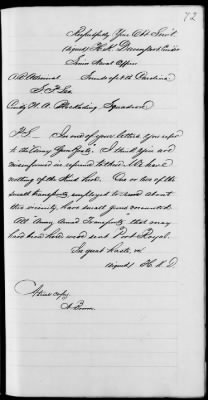 72
Respectfully Your Obt Servt
(signed) H. K. Davenport Comdr
Senior Naval Officer
A R Admiral Sounds of N. Carolina
S. P. Lee
Comdg N. A. Blockading Squadron
P.S. In one of your letters, you refer
to the Army Gun Boats. I think you are
misinformed in regard to them. We have
nothing of the kind here. One or two of the
small transports employed to move about
this vicinity, have small guns mounted.
All "Army Armed Transports" that may
have been here were sent Port Royal.
In great haste,
(signed) H. K. D.
A true copy